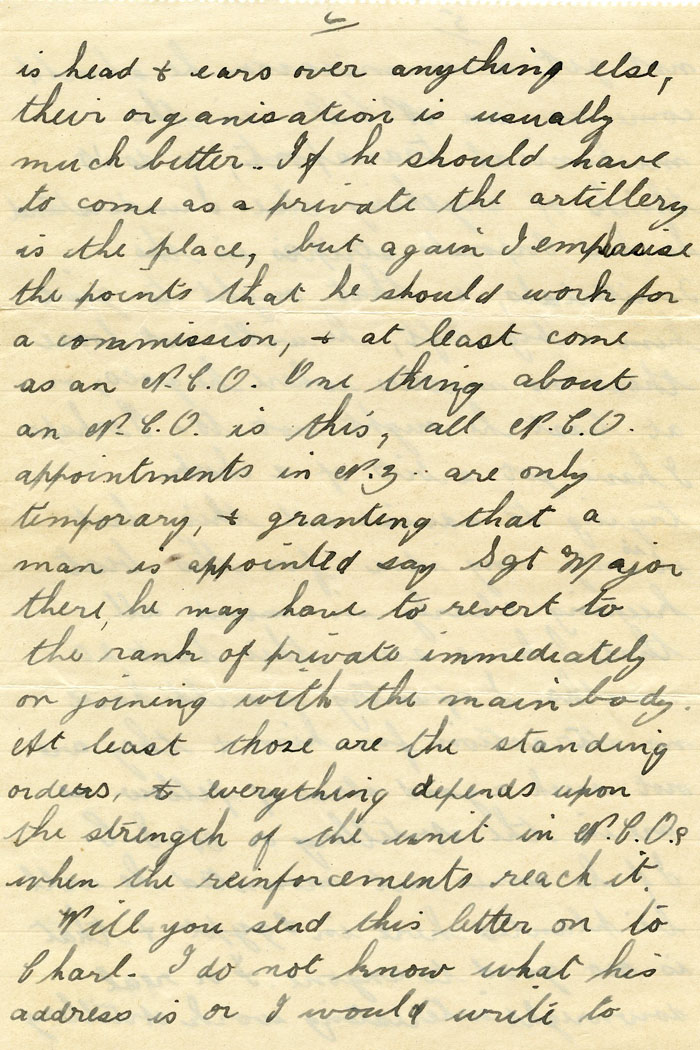 6
is head & ears over anything else,
their organisation is usually
much better. If he should have
to come as a private the artillery
is the place, but again I emphasise
the points that he should work for
a commission, & at least come
as an N.C.O. One thing about
an N.C.O. is this, all N.C.O.
appointments in N.Z. are only
temporary, & granting that a
man is appointed say Sgt Major
there, he may have to revert to
the rank of private immediately
on joining with the main body.
At least those are the standing
orders, & everything depends upon
the strength of the unit in N.C.O.s
when the reinforcements reach it.
Will you send this letter on to
Charl. I do not know what his
address is or I would write to